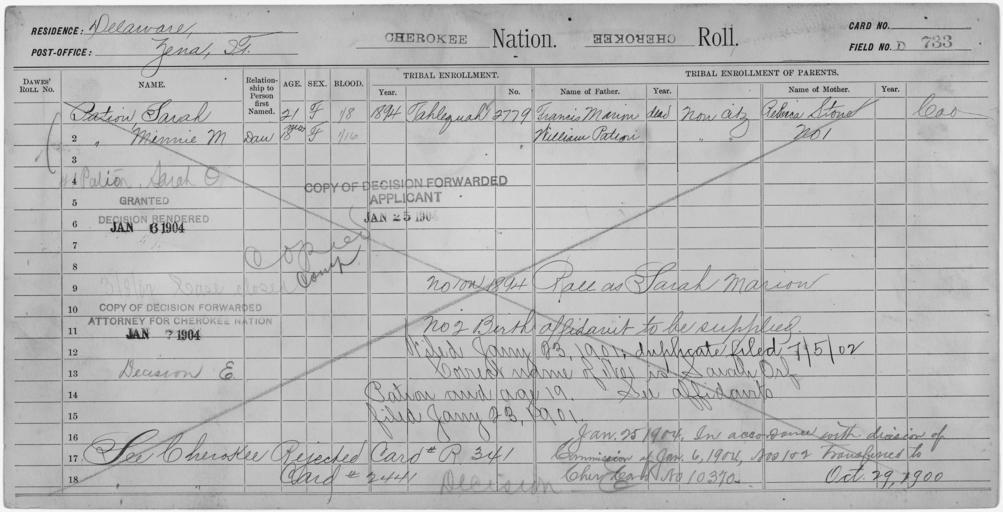 RESIDENCE: Delaware,
POST-OFFICE: Zena, I.T.
CHEROKEE Nation. CHEROKEE Roll.
CARD NO.
FIELD NO. D 733
DAWES' ROLL NO.
NAME.
Relationship to Person first Named.
AGE.
SEX.
BLOOD.
TRIBAL ENROLLMENT.
Year.
No.
TRIBAL ENROLLMENT OF PARENTS.
Name of Father.
Year.
Name of Mother.
Year.
Pation Sarah 21 F 1/8 1894 Tahlequah 2779 Francis Marion dead Non Citz Rebecca Stone
2 " Minnie M Dau F 1/16 William Pation " " No 1
3
4 Pation, Sarah O
5 GRANTED
DECISION RENDERED
6 JAN 6 1904
COPY OF DECISION FORWARDED
APPLICANT
JAN 25 1904
7
8
9 No 1 on 1894 Roll as Sarah Marion
10 COPY OF DECISION FORWARDED
11 ATTORNEY FOR CHEROKEE NATION
JAN 7 1904
No 2 Birth affidavit to be supplied.
12 Filed Jany 23, 1901, duplicate filed 7/5/02
13 Decision E
Correct name of No 1 is Sarah
14 Pation and age 19. See affidavits
15 filed Jany 23, 1901.
16 Jan. 25 1904. In accordance with decision of
17 See Cherokee Rejected Card # R 341 Commission of Jan. 6, 1904, Nos 1 & 2 transferred to
18 Card # 2441 Decision E Cher. Card No 10370. Oct. 29, 1900